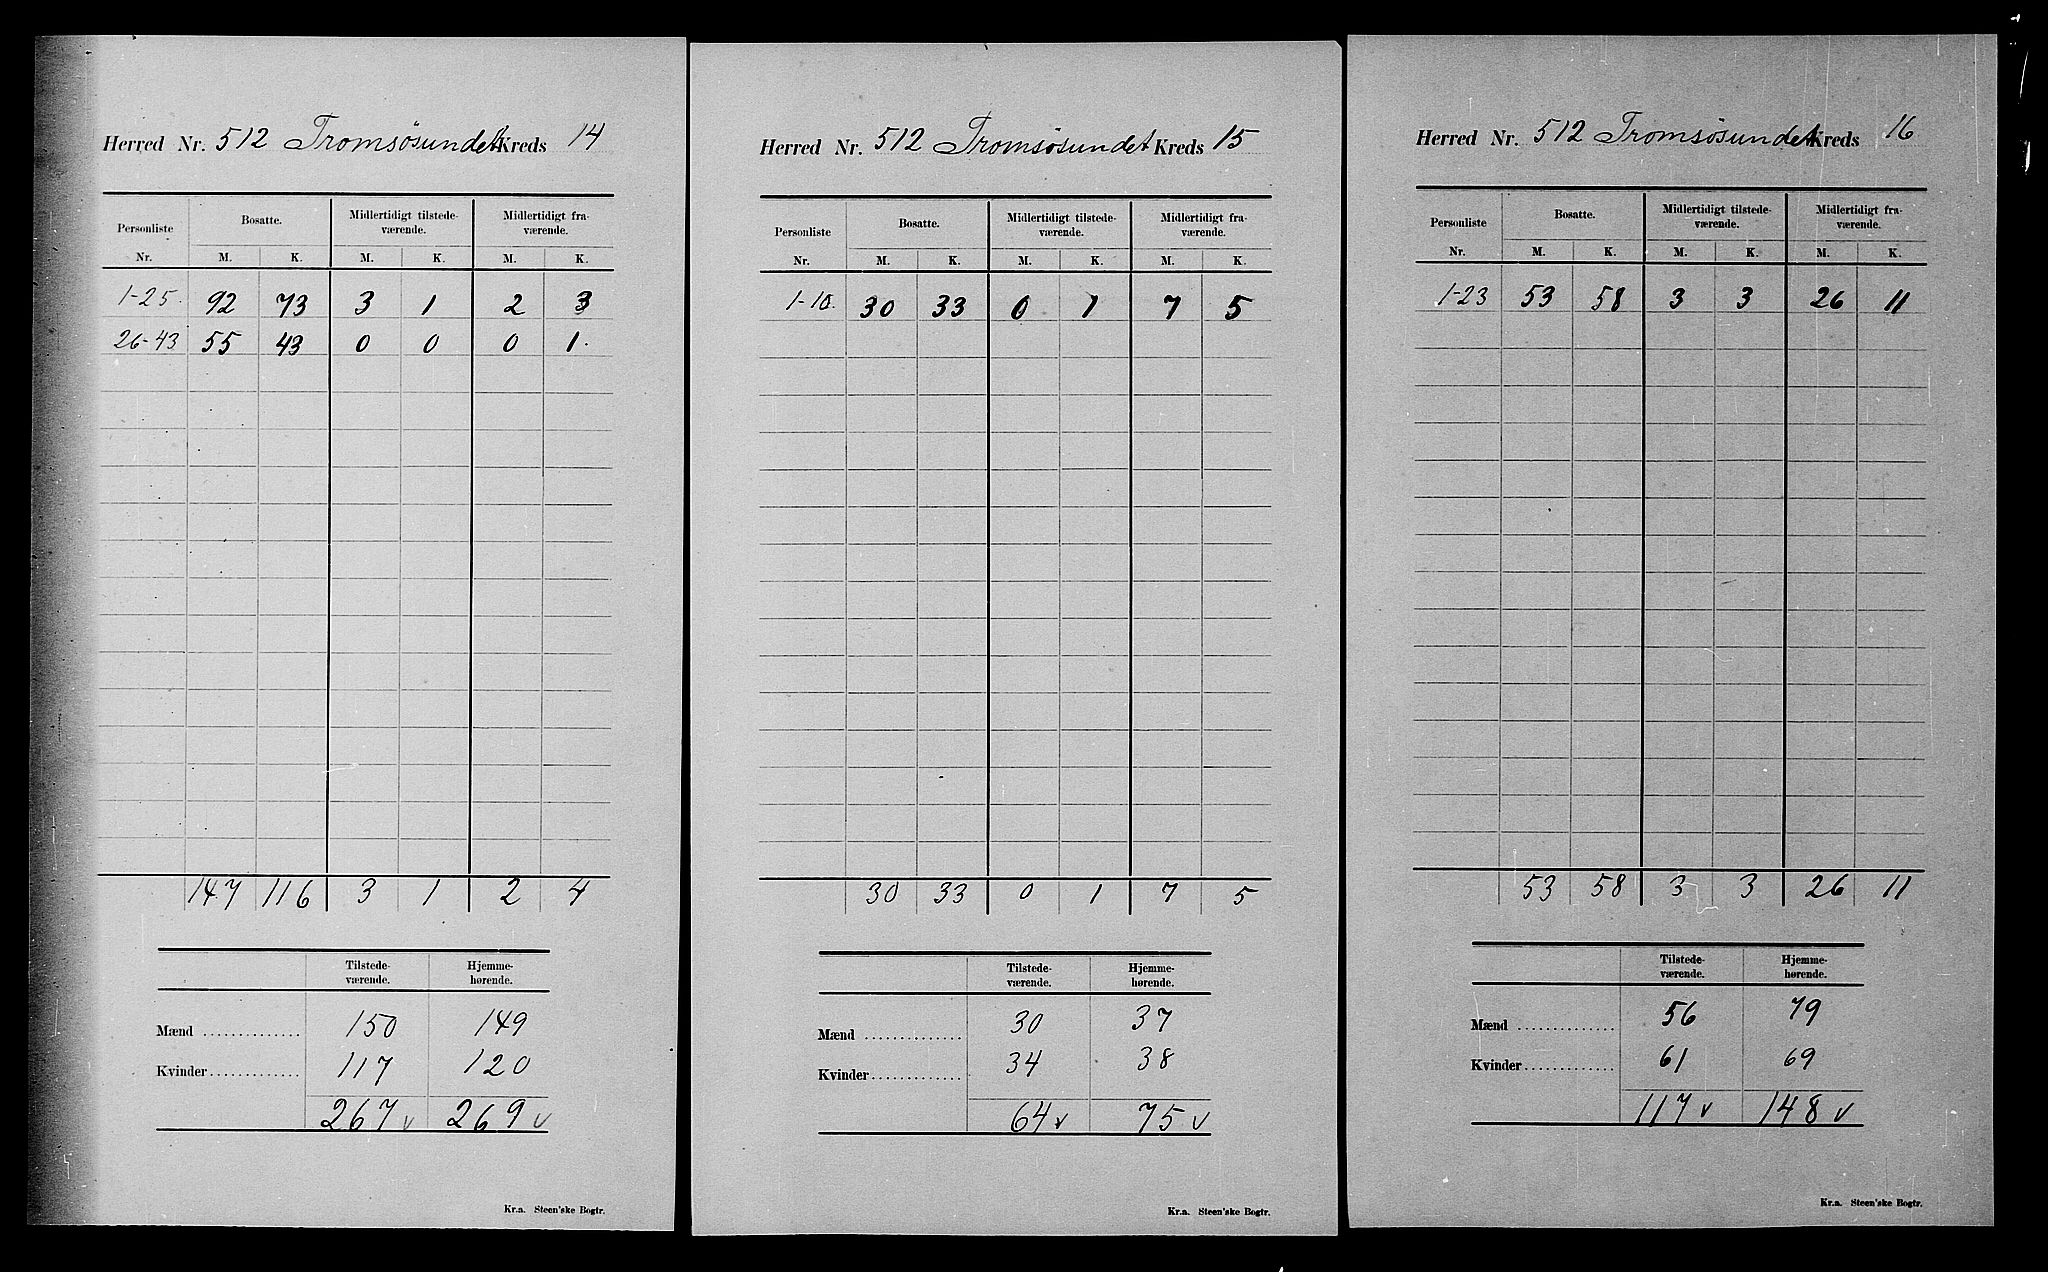 Herred Nr. 512 Tromsøsundet Kreds 14
Personliste Bosatte. Midlertidigt tilstede- Midlertidigt fra-
værende. værende.
Nr. M. K. M. K. M. K.
1-25. 92 73 3 1 2 3
26-43 55 43 0 0 0 1.
147 116 3 1 2 4
Tilstede- Hjemme-
værende. hørende.
Mænd .............. 150 149
Kvinder ............. 117 120
267 v 269 v
Kr.a. Steen'ske Bogtr.
Herred Nr. 512 Tromsøsundet Kreds 15
Personliste Bosatte. Midlertidigt tilstede- Midlertidigt fra-
værende. værende.
Nr. M. K. M. K. M. K.
1-10. 30 33 0 1 7 5
30 33 0 1 7 5
Tilstede- Hjemme-
værende. hørende.
Mænd .............. 30 37
Kvinder ............. 34 38
64 v 75 v
Kr.a. Steen'ske Bogtr.
Herred Nr. 512 Tromsøsundet Kreds 16
Personliste Bosatte. Midlertidigt tilstede- Midlertidigt fra-
værende. værende.
Nr. M. K. M. K. M. K.
1-23 53 58 3 3 26 11
53 58 3 3 26 11
Tilstede- Hjemme-
værende. hørende.
Mænd .............. 56 79
Kvinder ............. 61 69
117 v 148 v
Kr.a. Steen'ske Bogtr.